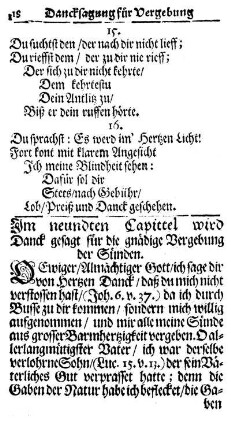 118 Dancksagung für Vergebung
15.
Du suchtst den / der nach dir nicht lieff;
Du rieffst dem / der zu dir nie rieff;
Der sich zu dir nicht kehrte /
Dem kehrtestu
Dein Antlitz zu /
Biß er dein ruffen hörte.
16.
Du sprachst: Es werd im' Hertzen Licht!
Fort kont mit klarem Angesicht
Ich meine Blindheit sehen:
Dafür sol dir
Stets / nach Gebühr /
Lob / Preiß und Danck geschehen.
Im neundten Capittel wird
Danck gesagt für die gnädige Vergebung
der Sünden.
O Ewiger / Almächtiger Gott / ich sage dir
von Hertzen Danck / daß du mich nicht
verstossen hast / (Joh. 6. v. 37.) da ich durch
Busse zu dir kommen / sondern mich willig
auffgenommen / und mir alle meine Sünde
aus grosser Barmhertzigkeit vergeben. O al-
lerlangmütigster Vater / ich war derselbe
verlohrne Sohn / (Luc. 15. v. 13.) der sein Vä-
terliches Gut verprasset hatte; denn die
Gaben der Natur habe ich beflecket / die Ga-
ben